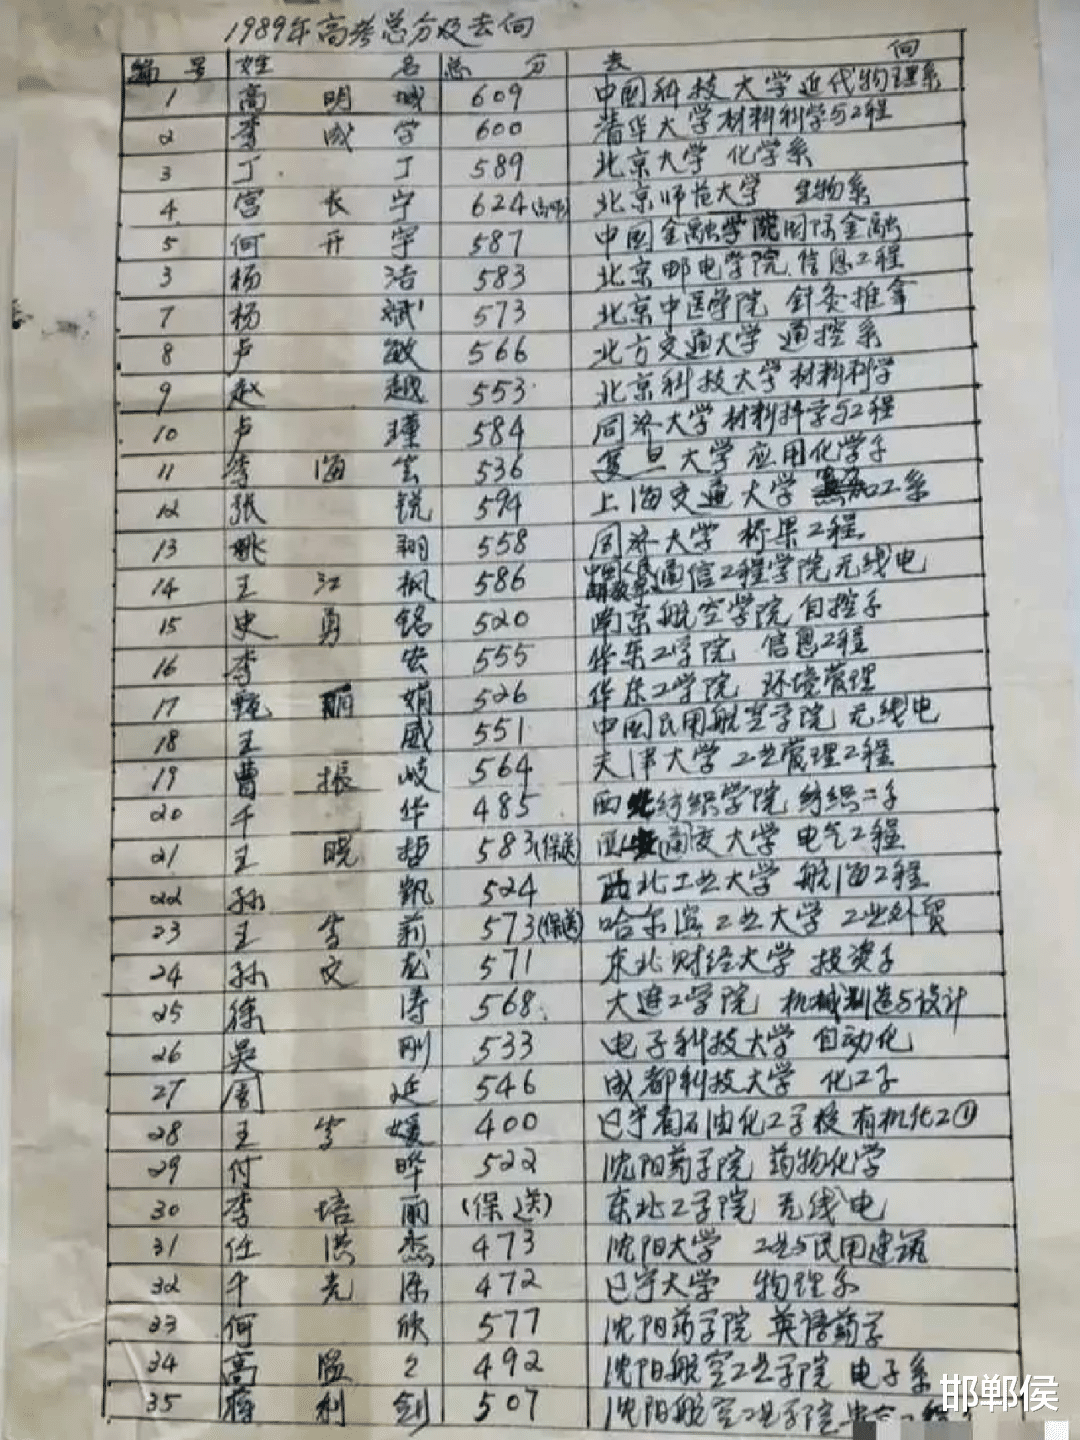 1989年高考总分及去向
编号 姓名 总分 去向
1 高明城 609 中国科技大学近代物理系
2 李成学 600 清华大学材料科学与工程
3 丁丁 589 北京大学 化学系
4 宫长宁 624 北京师范大学 生物系
5 何开宇 587 中国金融学院国际金融
3 杨浩 583 北京邮电学院 信息工程
7 杨斌 573 北京中医学院 针灸推拿
8 卢敏 566 北方交通大学 通控系
9 赵越 553 北京科技大学材料科学
10 卢瑾 584 同济大学材料科学与工程
11 李海 536 复旦大学 应用化学系
12 张锐 594 上海交通大学 加工系
13 姚翔 558 同济大学 桥梁工程
14 王江枫 586 通信工程学院无线电
15 史勇铭 520 南京航空学院 自控系
16 李宏 555 华东工学院 信息工程
17 甄丽娟 526 华东工学院 环境管理
18 王威 551 中国民用航空学院 无线电
19 曹振岐 564 天津大学 工业管理工程
20 于华 485 西北纺织学院 纺织二系
21 王晓哲 583(保送) 西安交大学 电气工程
22 孙凯 524 西北工业大学 航海工程
23 王雪莉 573(保送) 哈尔滨工业大学 工业外贸
24 孙文龙 571 东北财经大学 投资系
25 徐涛 568 大连工学院 机械制造与设计
26 吴刚 533 电子科技大学 自动化
27 周延 546 成都科技大学 化工系
28 王雪媛 400 辽宁省石油化工学校 有机化工①
29 付晔 522 沈阳药学院 药物化学
30 李培丽 (保送) 东北工学院 无线电
31 任洪杰 473 沈阳大学 工业与民用建筑
32 于光源 472 辽宁大学 物理系
33 何欣 577 沈阳药学院 英语药学
34 高 492 沈阳航空工业学院 电子系
35 蒋利剑 507 沈阳航空工业学院
邯郸侯